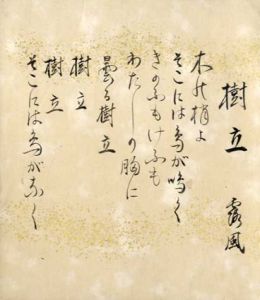 樹立　露風
木の梢よ
そこには鳥が鳴く
きのふもけふも
わたしの胸に
曇る樹立
樹立
樹立
そこには鳥がなく